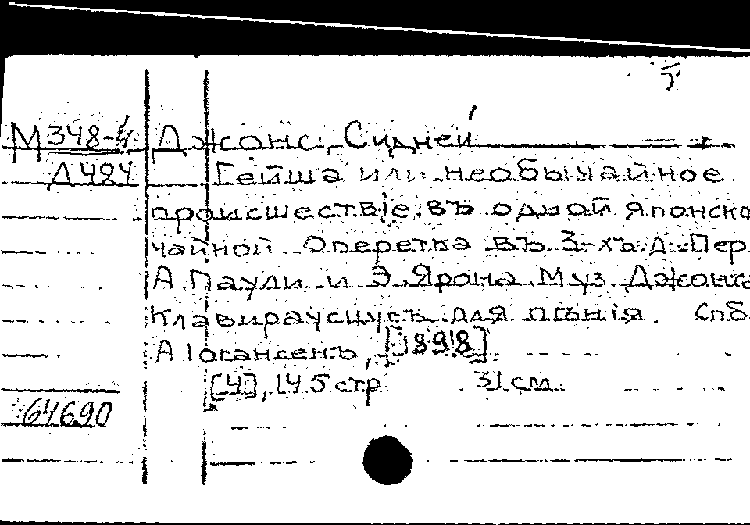 М 348-4 Джонс, Сидней
Д 484 Гейша или необычайное
происшествіе въ одной японско
чайной Оперетка въ 3-х д. Пер.
А. Паули и Э. Ярона Муз. Джонса
Клавираусцугъ для пѣнія. Спб.
А Іогансенъ, [1898]
[4], 145 стр 31 см.
64690